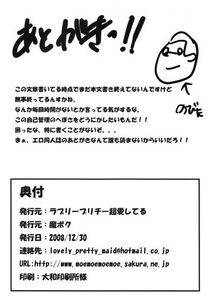 あとがきっ!!
のびた
この文章書いてる時点でまだ本文書き終えてないんですけど
無事終ってるんすかね、
なんか毎回時間がないとか言ってる気がするな、
この自己管理のヘボさをどうにかしたいもんだ!!
困ったな、特に書くことがないぞ、、、
まぁ、エロ同人誌のあとがきなんて誰も読まないからいいだろう!!
奥付
発行元：ラブリープリチー超愛してる
発行元：魔ボク
発行日：2008/12/30
連絡先：lovely_pretty_maid@hotmail.co.jp
URL:http://www.moemoemoemoe.sakura.ne.jp
印刷：大和印刷所様